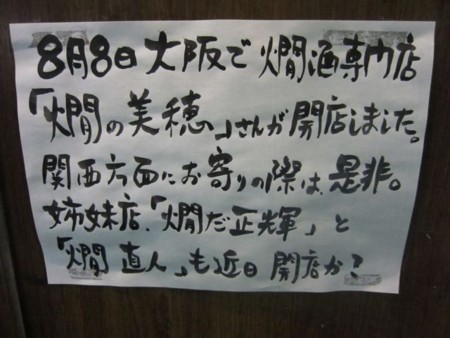 8月8日大阪で燗酒専門店
「燗の美穂」さんが開店しました。
関西方面にお寄りの際は是非。
姉妹店、「燗だ正輝」と
「燗 直人」も近日開店か?